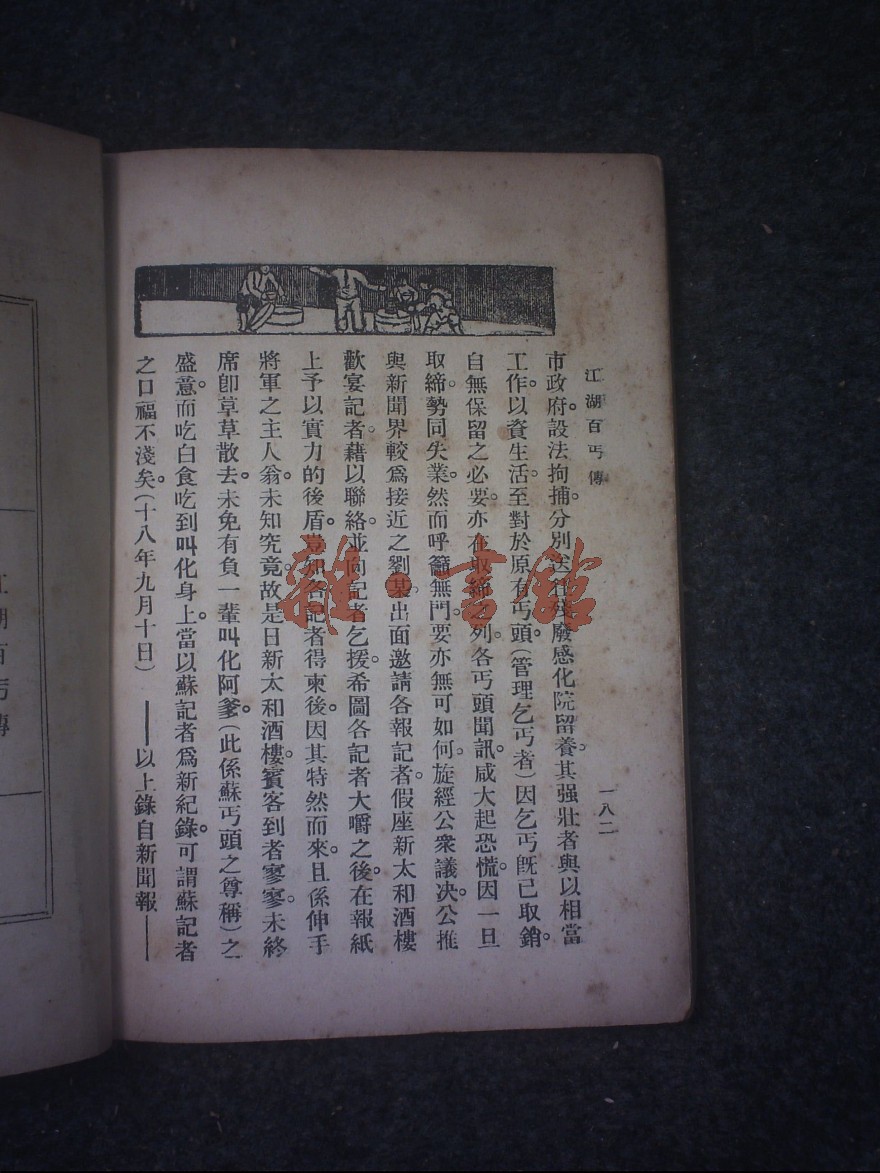 江湖百丐傳
一八二
市政府。設法拘捕。分別送往殘廢感化院留養。其强壯者與以相當
工作。以資生活。至對於原有丐頭。(管理乞丐者)因乞丐旣已取銷。
自無保留之必要。亦在取締之列。各丐頭聞訊。咸大起恐慌。因一旦
取締。勢同失業。然而呼籲無門。要亦無可如何。旋經公衆議决。公推
與新聞界較爲接近之劉某。出面邀請各報記者。假座新太和酒樓
歡宴記者。藉以聯絡。並向記者乞援。希圖各記者大嚼之後。在報紙
上予以實力的後盾。豈知各記者得柬後。因其特然而來。且係伸手
將軍之主人翁。未知究竟。故是日新太和酒樓。賓客到者寥寥。未終
席卽草草散去。未免有負一輩叫化阿爹。(此係蘇丐頭之尊稱)之
盛意。而吃白食吃到叫化身上。當以蘇記者爲新紀錄。可謂蘇記者
之口福不淺矣。(十八年九月十日) ——以上錄自新聞報——
江湖百丐傳
雜·書館